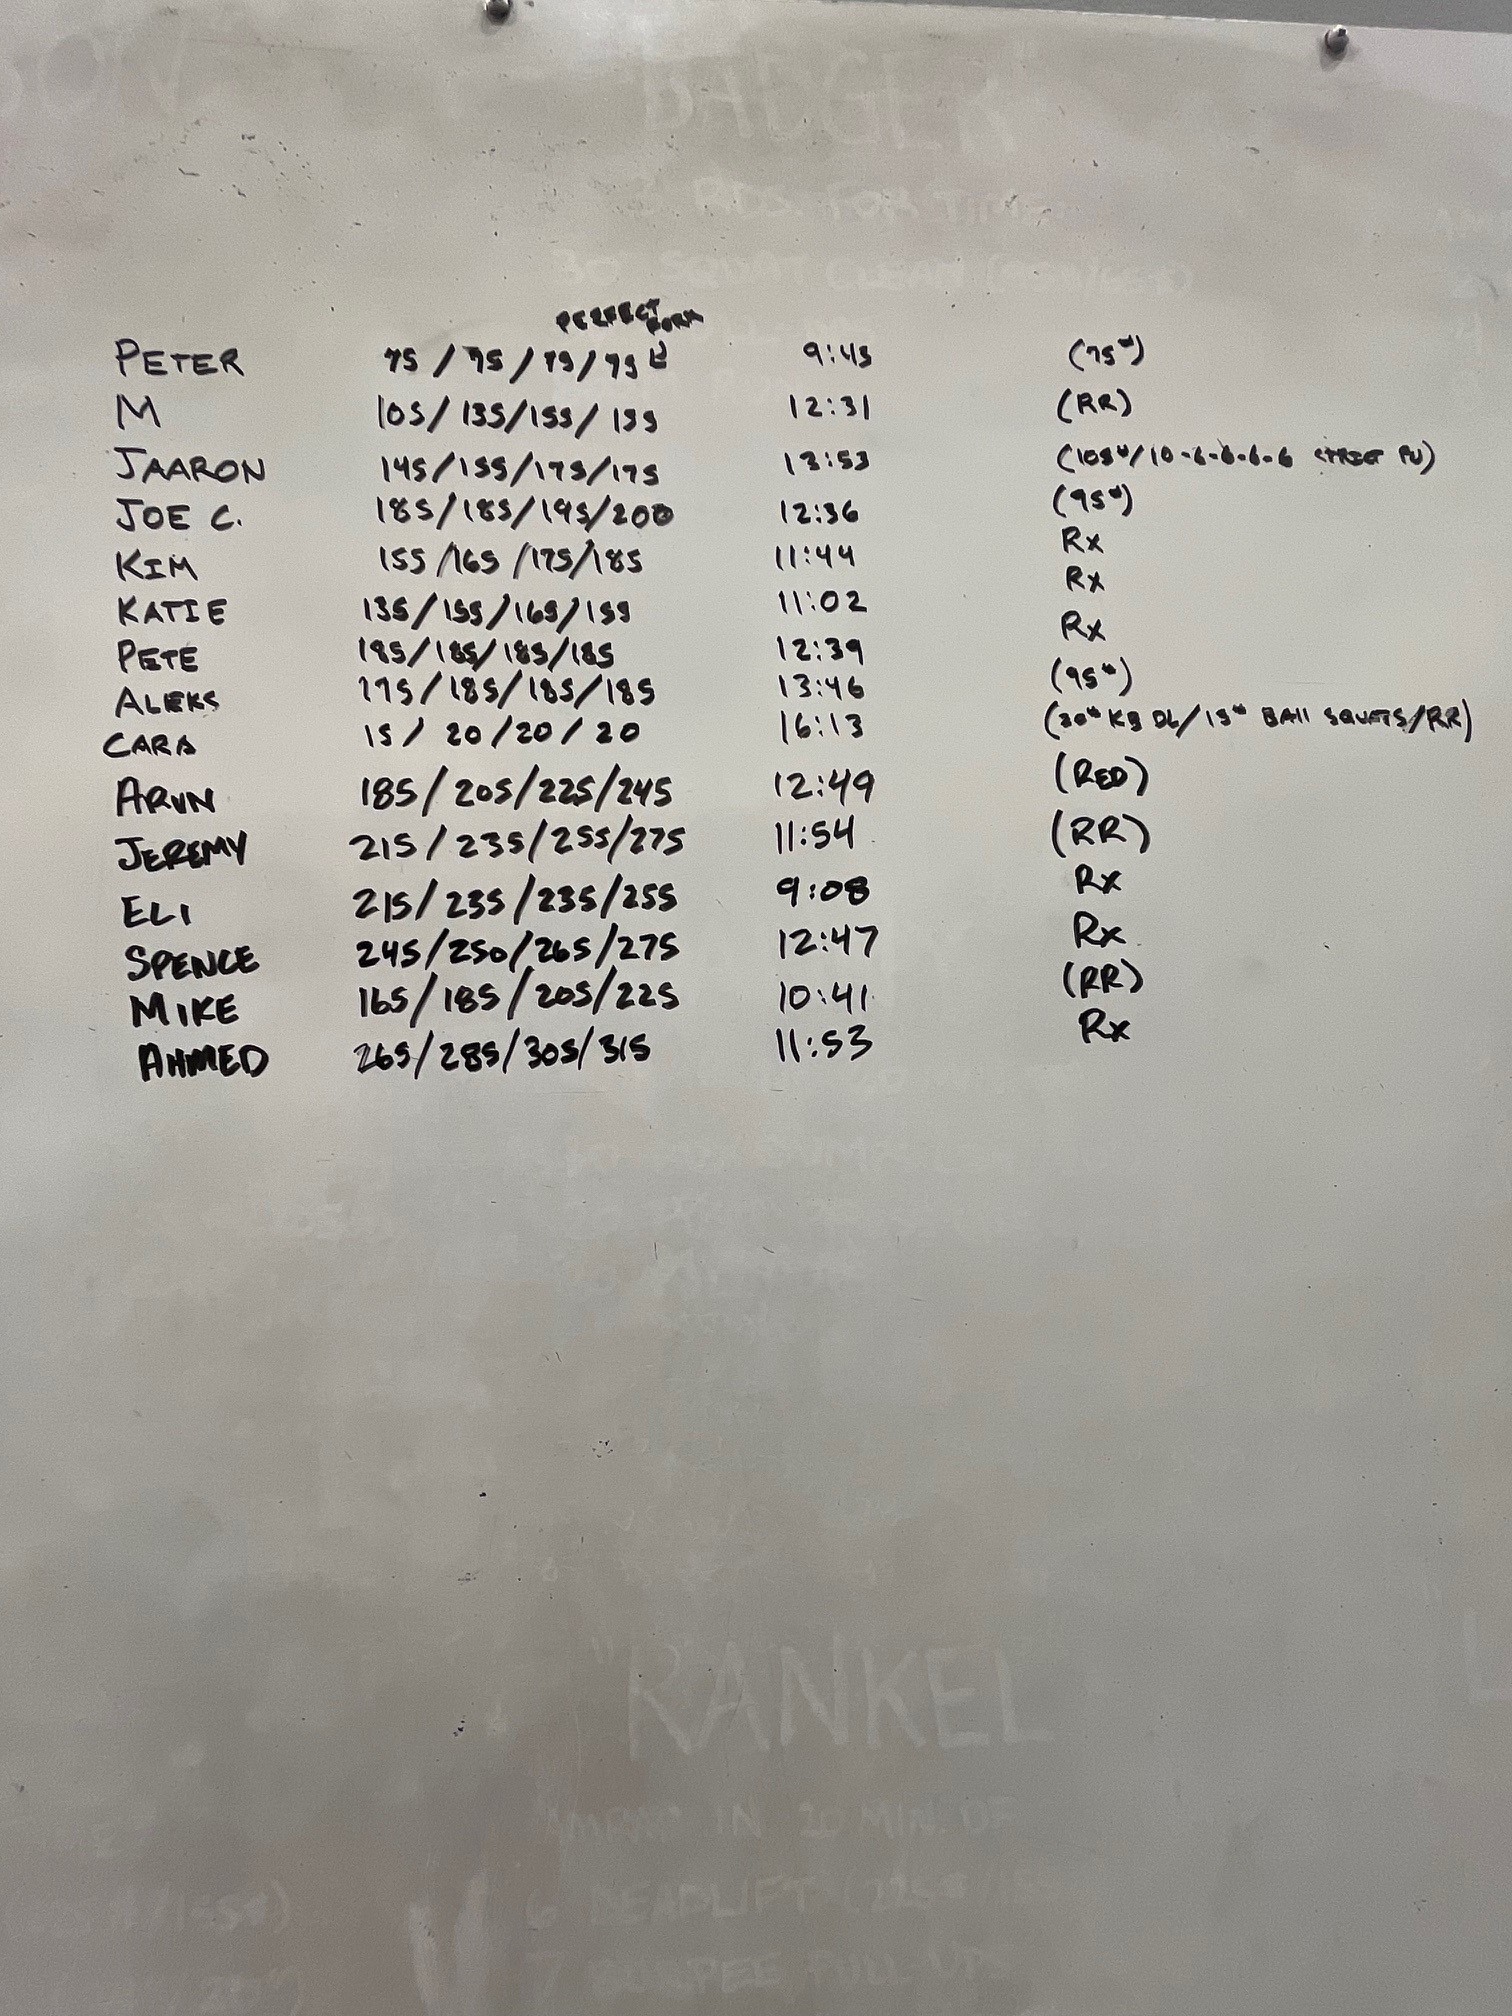 BADGER"
3 RDS. FOR TIME
30 SQUAT CLEAN
PERFECT FORM
PETER 75 / 75 / 75 / 75 9:45 (75#)
M 105 / 135 / 155 / 155 12:31 (RR)
JAARON 145 / 155 / 175 / 175 13:53 (105#/10-6-6-6-6 STRICT PU)
JOE C. 185 / 185 / 195 / 200 12:36 (95#)
KIM 155 / 165 / 175 / 185 11:44 Rx
KATIE 135 / 155 / 165 / 155 11:02 Rx
PETE 185 / 185 / 185 / 185 12:39 Rx
ALEKS 175 / 185 / 185 / 185 13:46 (95#)
CARA 15 / 20 / 20 / 20 16:13 (30# KB DL / 15# BALL SQUATS / RR)
ARUN 185 / 205 / 225 / 245 12:49 (RED)
JEREMY 215 / 235 / 255 / 275 11:54 (RR)
ELI 215 / 235 / 235 / 255 9:08 Rx
SPENCE 245 / 250 / 265 / 275 12:47 Rx
MIKE 165 / 185 / 205 / 225 10:41 (RR)
AHMED 265 / 285 / 305 / 315 11:53 Rx
"RANKEL
AMRAP IN 20 MIN. OF
6 DEADLIFT (225#
7 BURPEE PULL-UPS